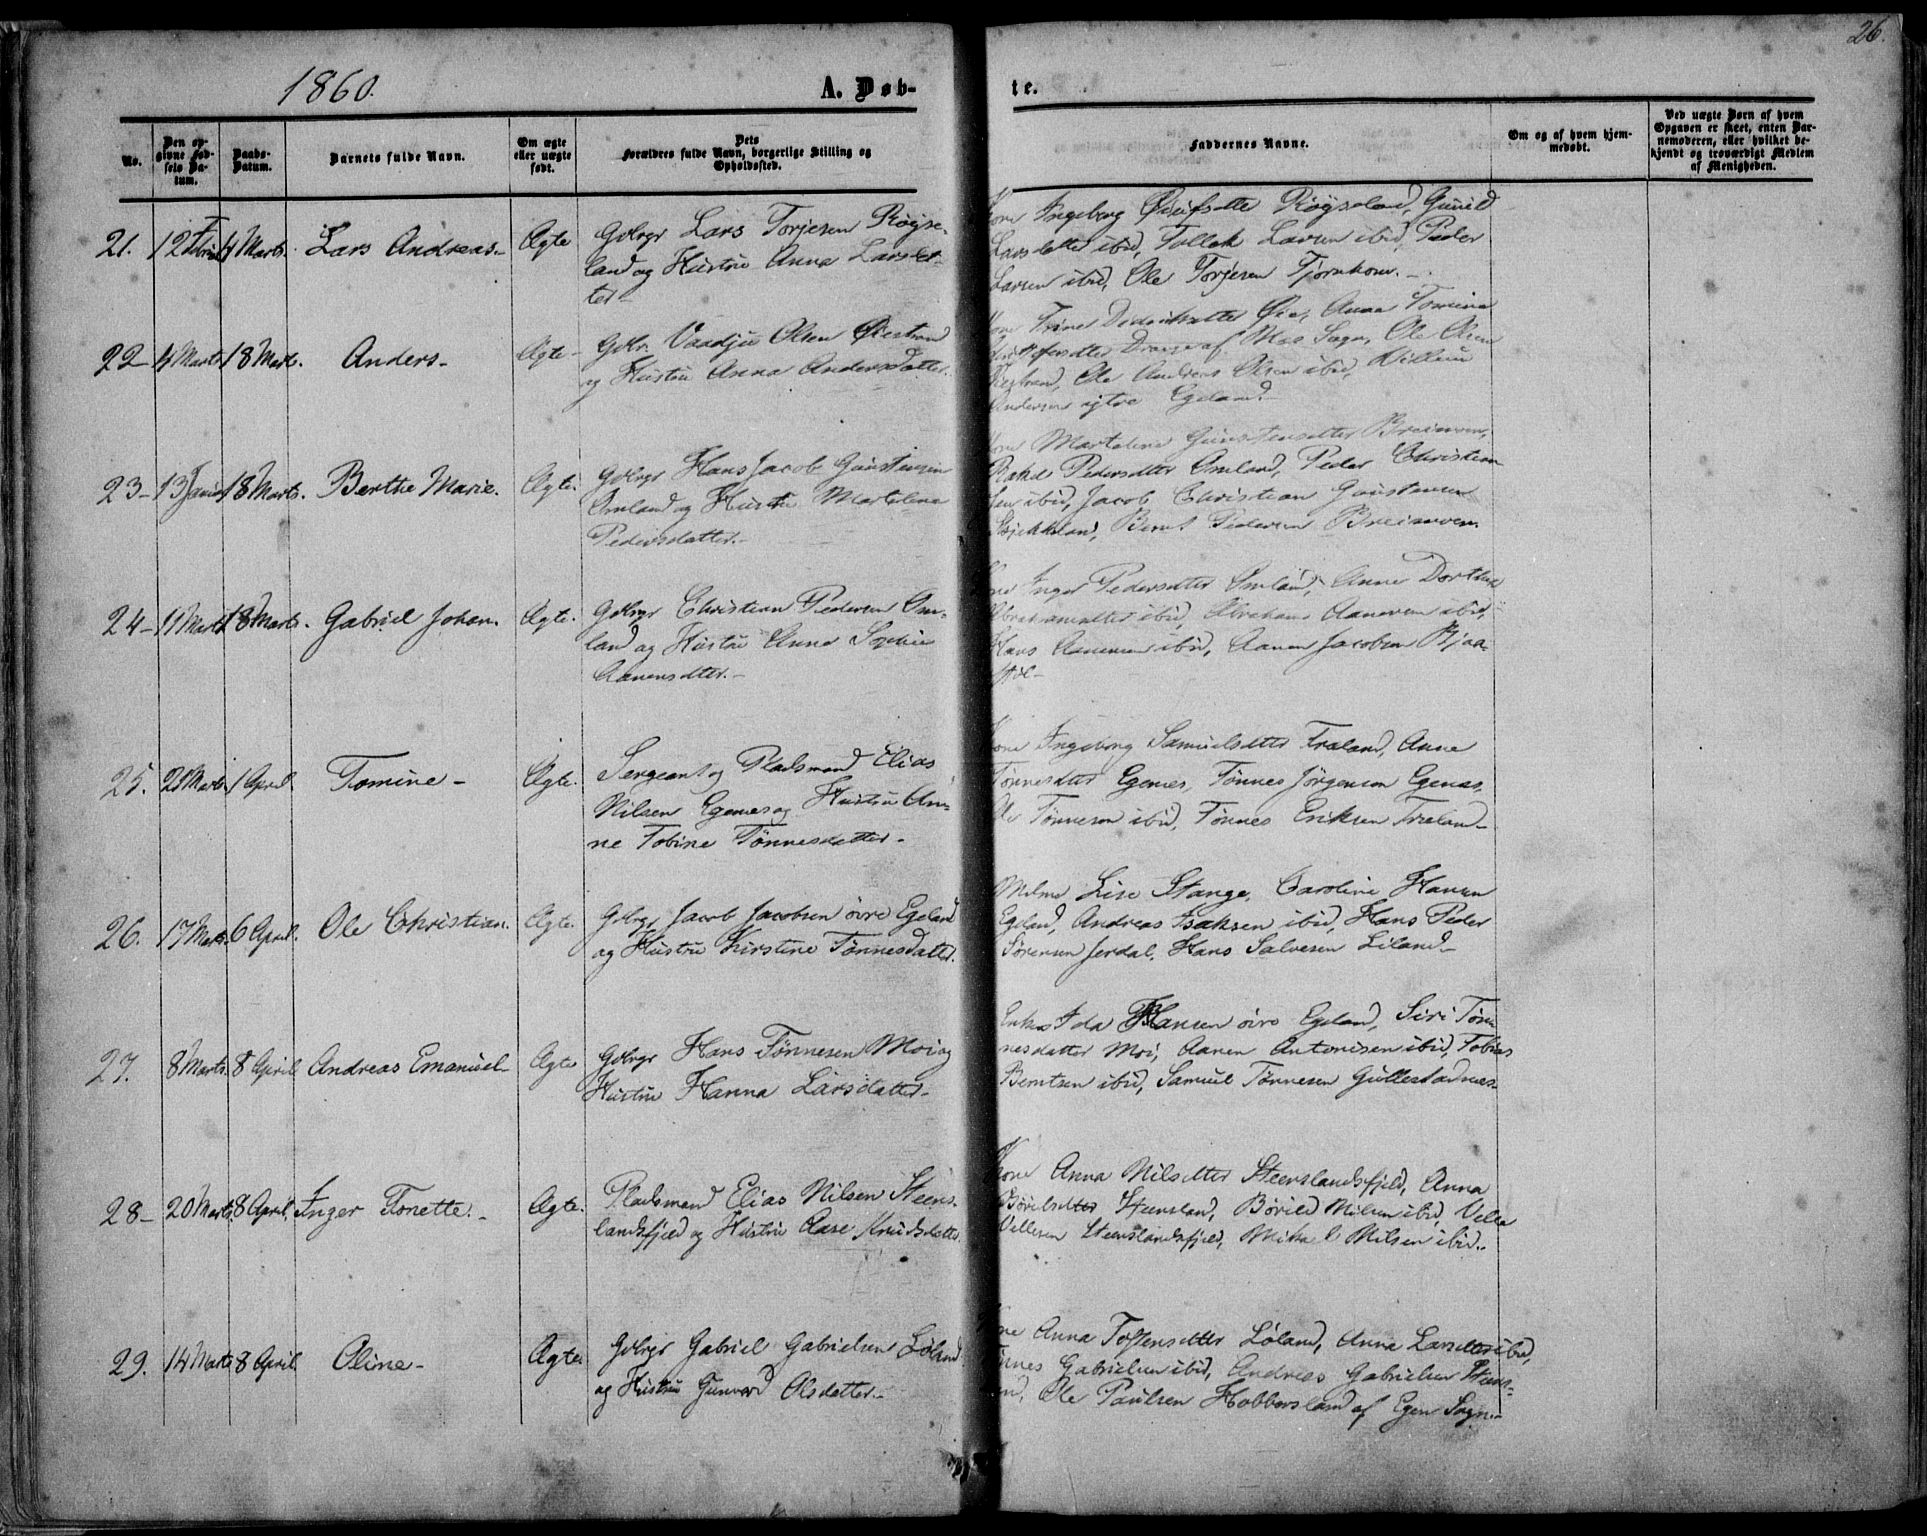 1860.
A. Døb-
te.
26.
No.
Den op-
givne Fød-
sels Da-
tum.
Daabs-
Datum.
Barnets fulde Navn.
Om ægte
eller uægte
født.
Dets
Forældres fulde Navn, borgerlige Stilling og
Opholdssted.
Faddernes Navne.
Om og af hvem hjem-
medøbt.
Ved uægte Børn af hvem
Opgaven er skeet, enten Bar-
nemoderen, eller hvilket be-
kjendt og troværdigt Medlem
af Menigheden.
21. 12 Febr. 4 Marts. Lars Andreas. Ægte
Gdbrgr Lars Torjesen Røyse-
land og Hustru Anna Larsdat-
ter
Kone Ingeborg Røyseland, Gunild
Larsdatter ibid, Tollak Larsen ibid, Peder
Larsen ibid, Ole Torjesen Tjørnhom.
22 4 Marts 18 Marts. Anders Ægte
Gdbr. Vaadju Olsen Øiestrand
og Hustru Anna Andersdatter.
Kone Trine Øie, Anna Tomine
af Næs Sogn, Ole Olsen
Øiestrand, Ole Andreas Olsen ibid, Villum
Andersen ytre Egeland
23 13 Januar 18 Marts. Berthe Marie. Ægte.
Gdbrgr Hans Jacob Gunstensen
Omland og Hustru Martalena
Pedersdatter.
Kone Martalena Gunstensdatter Breimoen,
Rakel Pedersdtter Omland, Peder Christian-
sen ibid, Jacob Christian Gunstensen
Bernt Pedersen Breimoen.
24 11 Marts 18 Marts. Gabriel Johan. Ægte.
Gdbrgr Christian Pedersen Om-
land og Hustru Anna Sophie
Aanensdtter.
Kone Inger Pedersdtter Omland, Anne Dorthea
Abrahamsdtter ibid, Abraham Aanensen ibid,
Hans Aanensen ibid, Aanen Jacobsen Bjaa-
støl
25. 23 Marts 1 April. Tomine Ægte.
Sergeant og Pladsmand Elias
Nilsen Egenes og Hustru An-
ne Tobine Tønnesdatter.
Kone Ingeborg Samuelsdtter Træland, Anne
Tønnesdtter Egenes, Tønnes Jørgensen Egenes,
Ole Tønnesen ibid, Tønnes Eriksen Træland
26. 17 Marts. 6 April. Ole Christian. Ægte.
Gdbrgr Jacob Jacobsen øvre Egeland
og Hustru Kirstine Tønnesdatter.
Lise Stange, Caroline Hansen
Egeland, Andreas Isaksen ibid, Hans Peder
Sørensen Jerdal, Hans Salvesen Liland
27. 8 Marts. 8 April Andreas Emanuel Ægte
Gdbrgr Hans Tønnesen Moi og
Hustru Hanna Larsdatter
Enken Ida Hansen øvre Egeland, Siri Tøn-
nesdatter Moi, Aanen Antonisen ibid, Tobias
Berntsen ibid, Samuel Tønnesen Gullestadnes
28 20 Marts 8 April. Inger Tonette. Ægte.
Pladsmand Elias Nilsen Steens-
landsfjeld og Hustru Aase Knudsdatter.
Kone Anna Nilsdtter Steenslandsfjeld, Anna
Børildsdtter Steensland, Børild Nilsen ibid, Velle
Vellesen Steenslandsfjeld, Mikal Nilsen ibid.
29. 14 Marts 8 April. Oline Ægte.
Gdbrgr Gabriel Gabrielsen Løland
og Hustru Gunvord Olsdatter.
Kone Anna Tostensdtter Løland, Anna Larsdtter ibid,
Tønnes Gabrielsen ibid, Andreas Gabrielsen Steens-
land, Ole Paulsen Hobbesland af Egen Sogn.